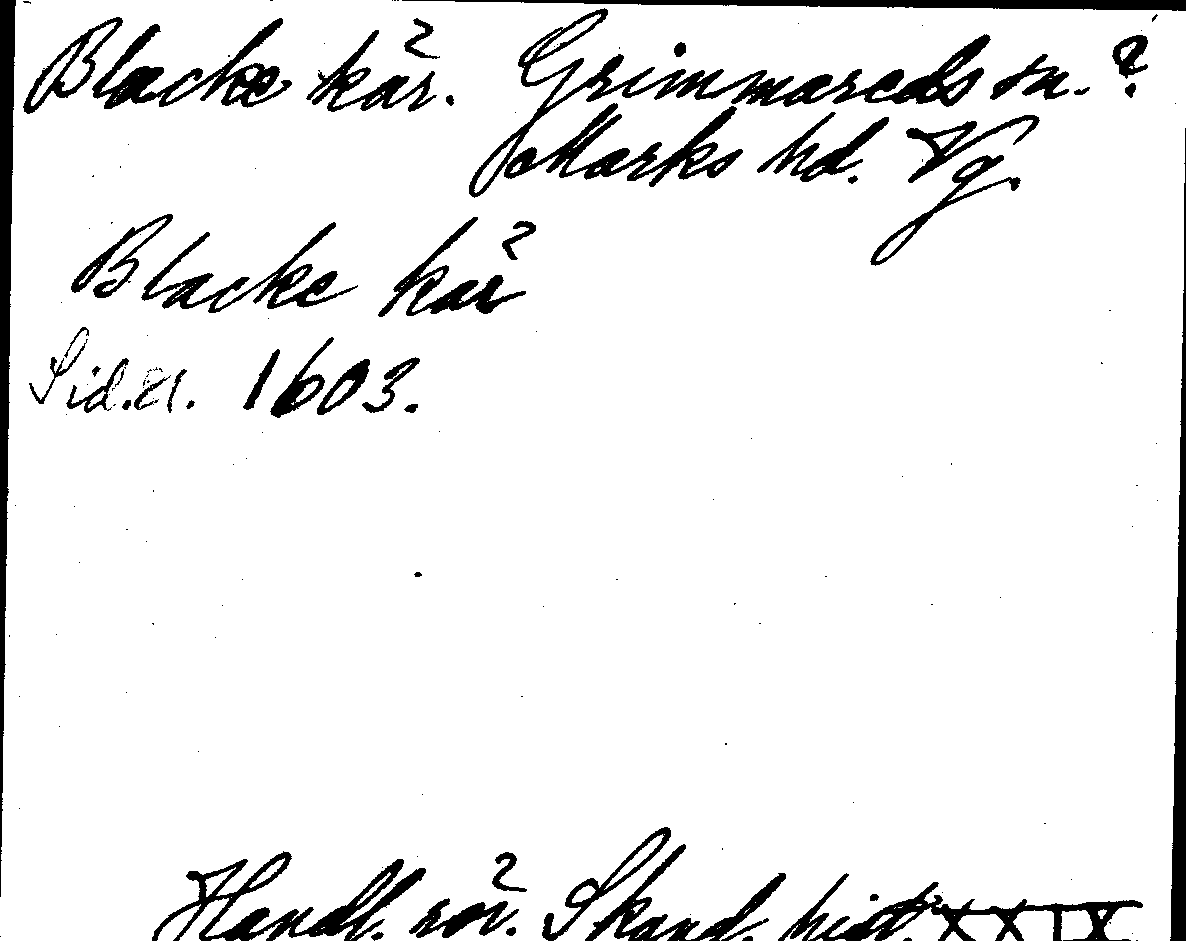 Blacke kär. Grimmareds sn. ?
Marks hd. Vg.
Blacke kär
Sid. 21. 1603.
Handl. rör. Skand. hist. XXIX